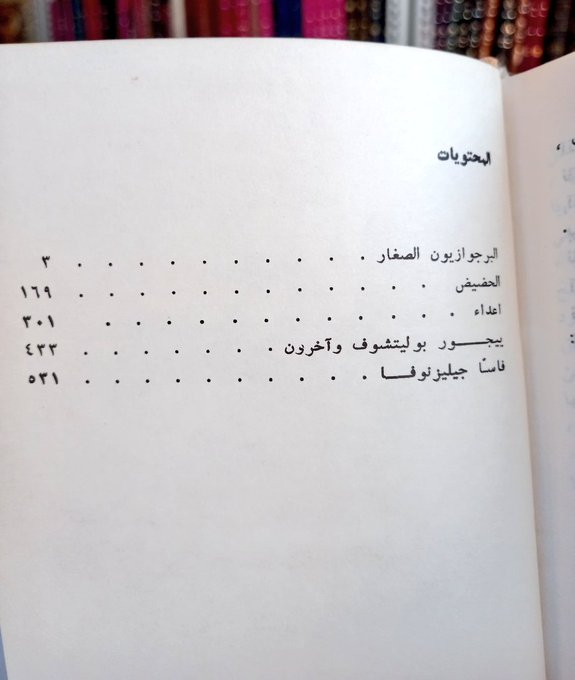 المحتويات
البرجوازيون الصغار . . . . . . . . . . ٣
الحضيض . . . . . . . . . . . . ١٦٩
اعداء . . . . . . . . . . . . . ٣٠١
ييجـــور بوليتشوف وآخرون . . . . . . . ٤٣٣
فاسّا جيليزنوفـــا . . . . . . . . . . ٥٣١